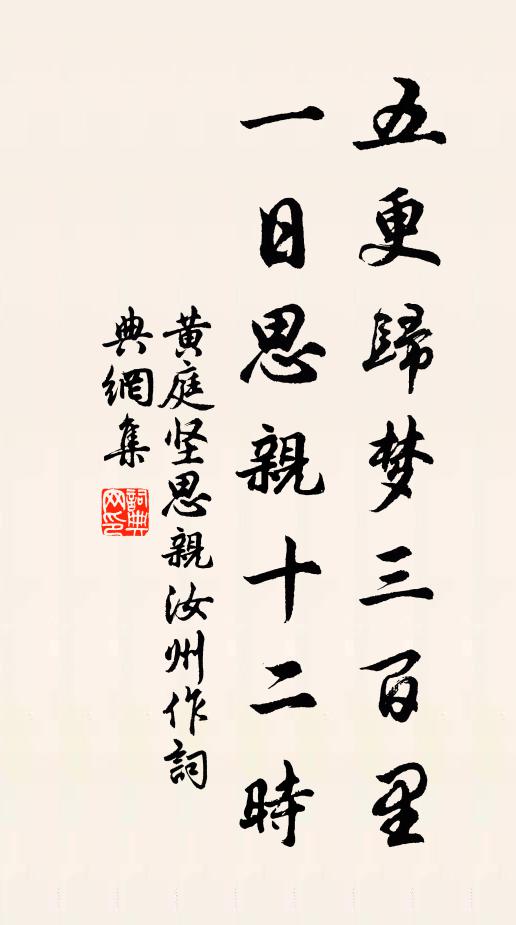 五更歸梦三百里
一日思親十二時
黄庭坚思親汝州作詞
典網集
詞典网印